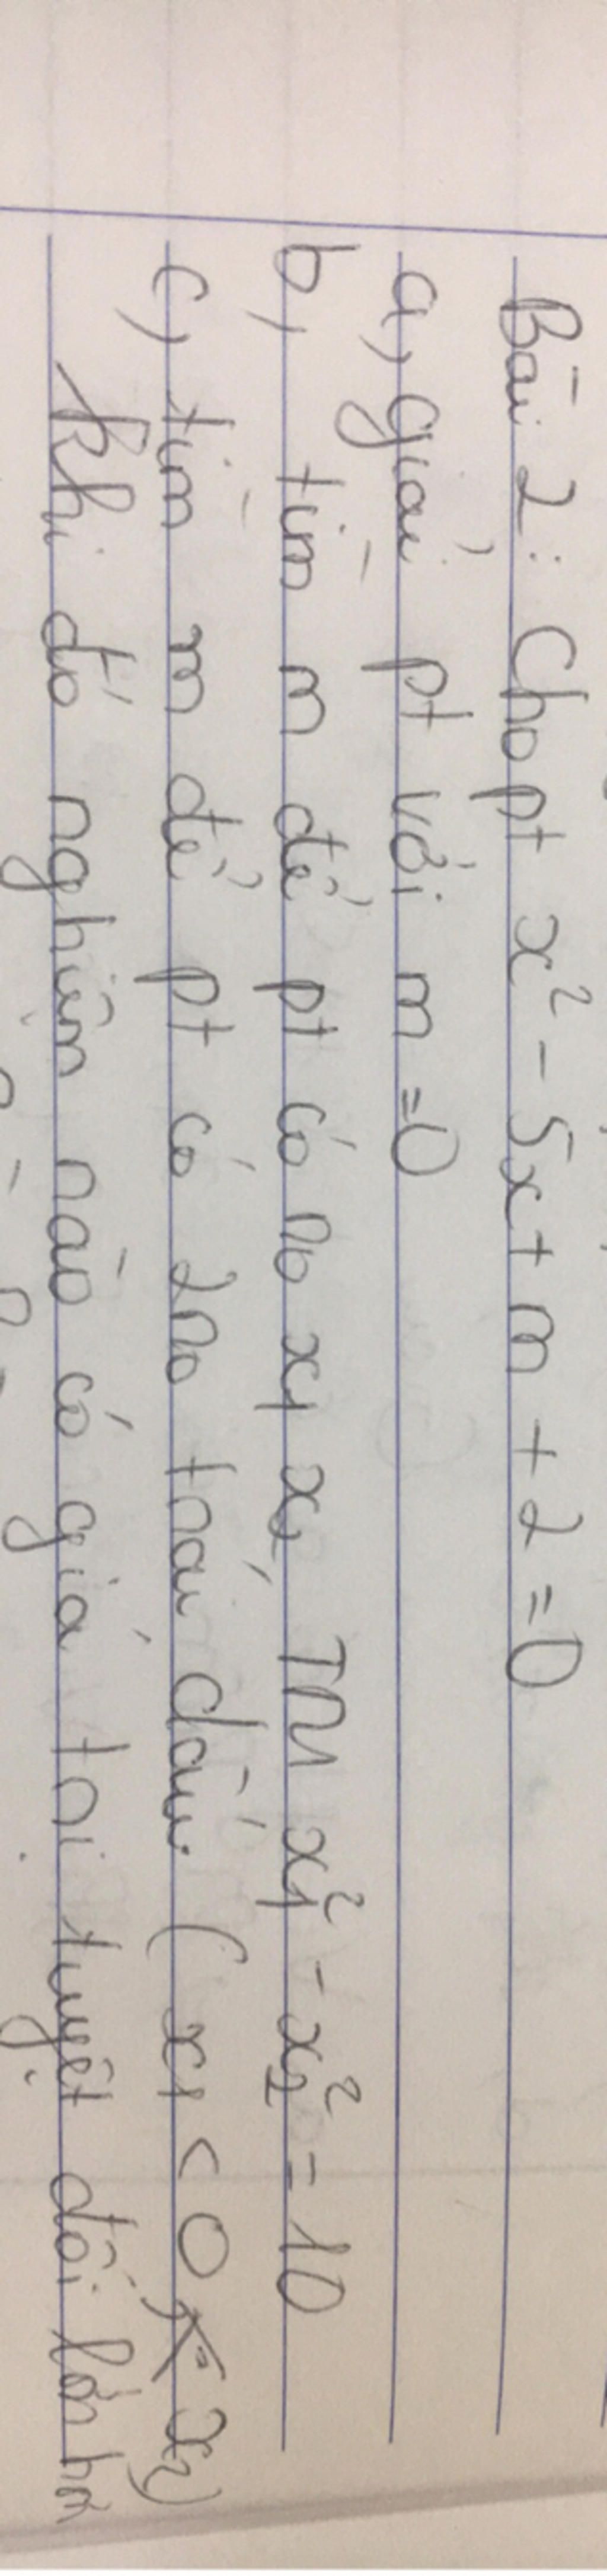 Bài 2: Cho pt x² - 5x + m + 2 = 0
a, giải pt với m = 0
b, tìm m để pt có no x1 x2 TM x1² - x2² = 10
c, tìm m để pt có 2no trái dấu (x1 < 0 < x2)
Khi đó nghiệm nào có giá trị tuyệt đối lớn hơn